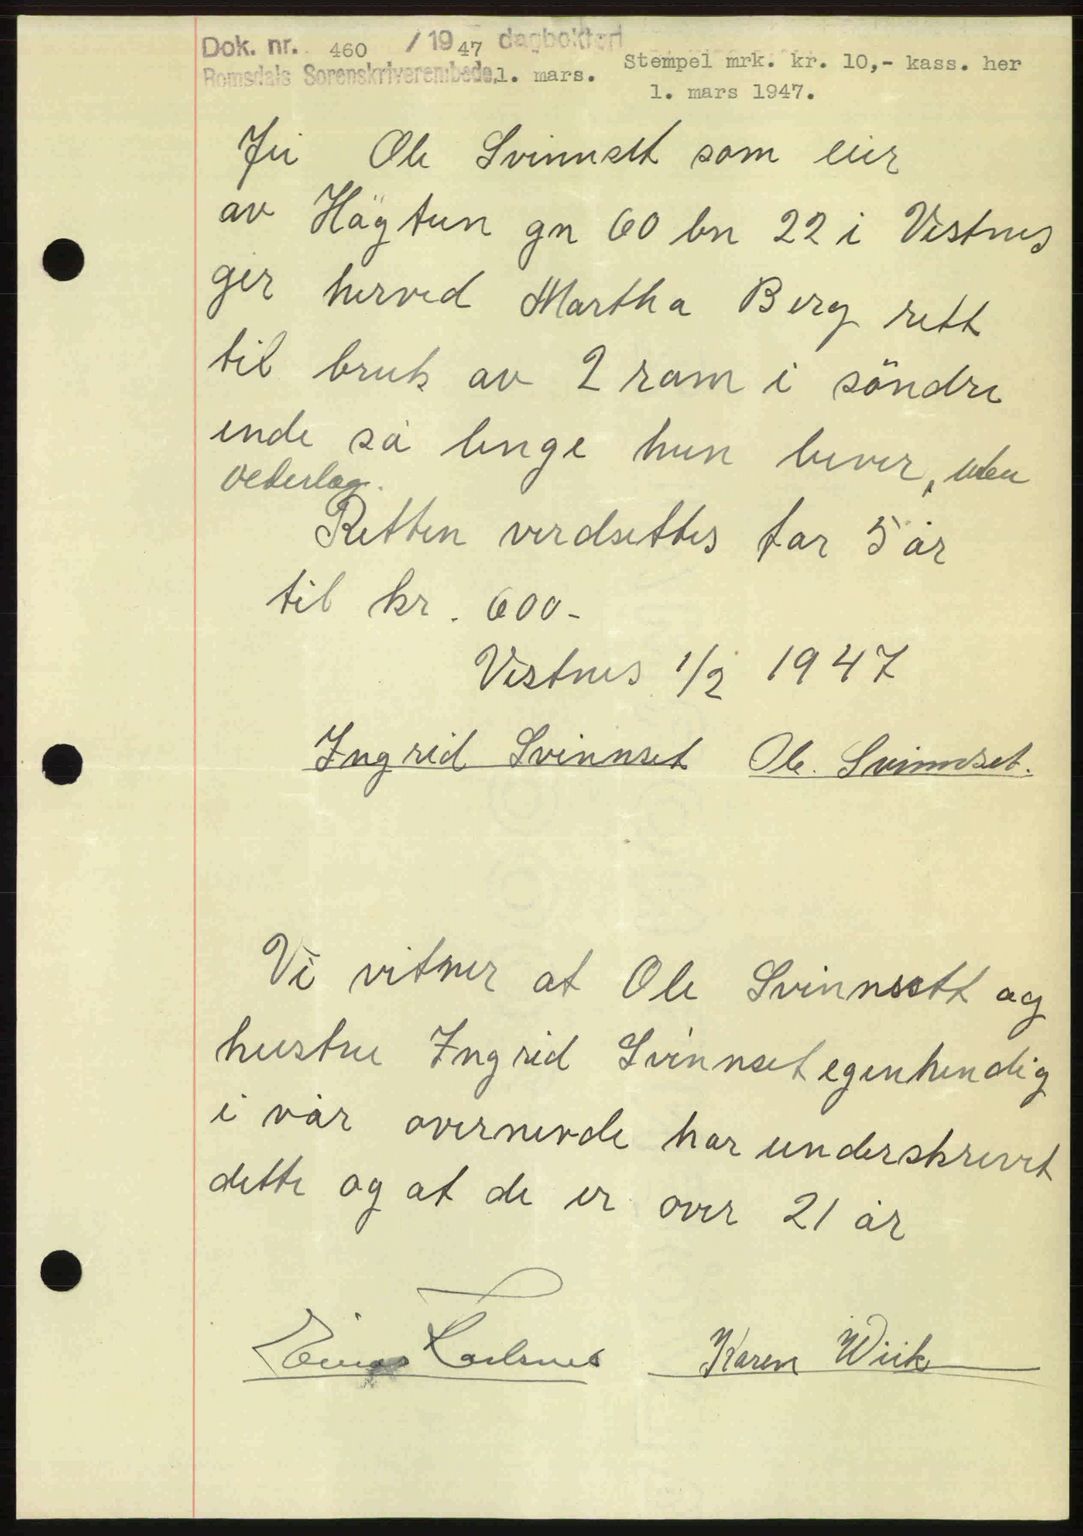 Dok. nr. 460 / 1947 dagbokført
Romsdals Sorenskriverembede, 1. mars. Stempel mrk. kr. 10,- kass. her
1. mars 1947.
Ole Svinnset som eier
av Högtun gn 60 bn 22 i Vestnes
gir herved Martha Berg rett
til bruk av 2 rom i söndre
ende så lenge hun lever, uten
vederlag.
Retten verdsettes for 5 år
til kr. 600-
Vestnes 1/2 1947
Ingrid Svinnset Ole Svinnset.
Vi vitner at Ole Svinnsett og
hustru Ingrid Svinnset egenhendig
i vår overnevde har underskrevet
dette og at de er over 21 år
Karen Wiik